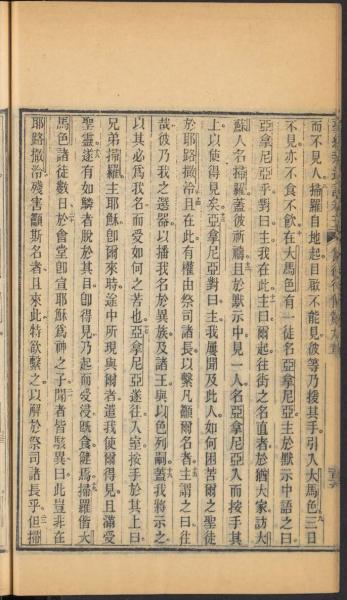 而不見人掃羅自地起目瞰不能見彼等乃援其手引入大馬色三日
不見亦不食不飲在大馬色有一徒名亞拿尼亞主於默示中語之曰
亞拿尼亞乎對曰主我在此主曰爾起往街之名直者於猶大家訪大
蘇人名掃羅蓋彼祈禱且於默示中見一人名亞拿尼亞入而按手其
上以使得見矣亞拿尼亞對曰主我屢聞及此人如何困苦爾之聖徒
於耶路撒冷且在此有權由祭司諸長以繫凡籲爾名者主謂之曰往
哉彼乃我之選器以播我名於異族及諸王與以色列嗣蓋我將示之
以其必爲我名而受如何之苦也亞拿尼亞遂往入室按手於其上曰
兄弟掃羅主耶穌卽爾來時途中所現與爾者遣我使爾得見且滿受
聖靈遂有如鱗者脫於其目卽得見乃起而受浸旣食健焉掃羅偕大
馬色諸徒數日於會堂卽宣耶穌爲神之子聞者皆駭異曰此豈非在
耶路撒冷殘害籲斯名者且來此特欲繫之以解於祭司諸長乎但掃